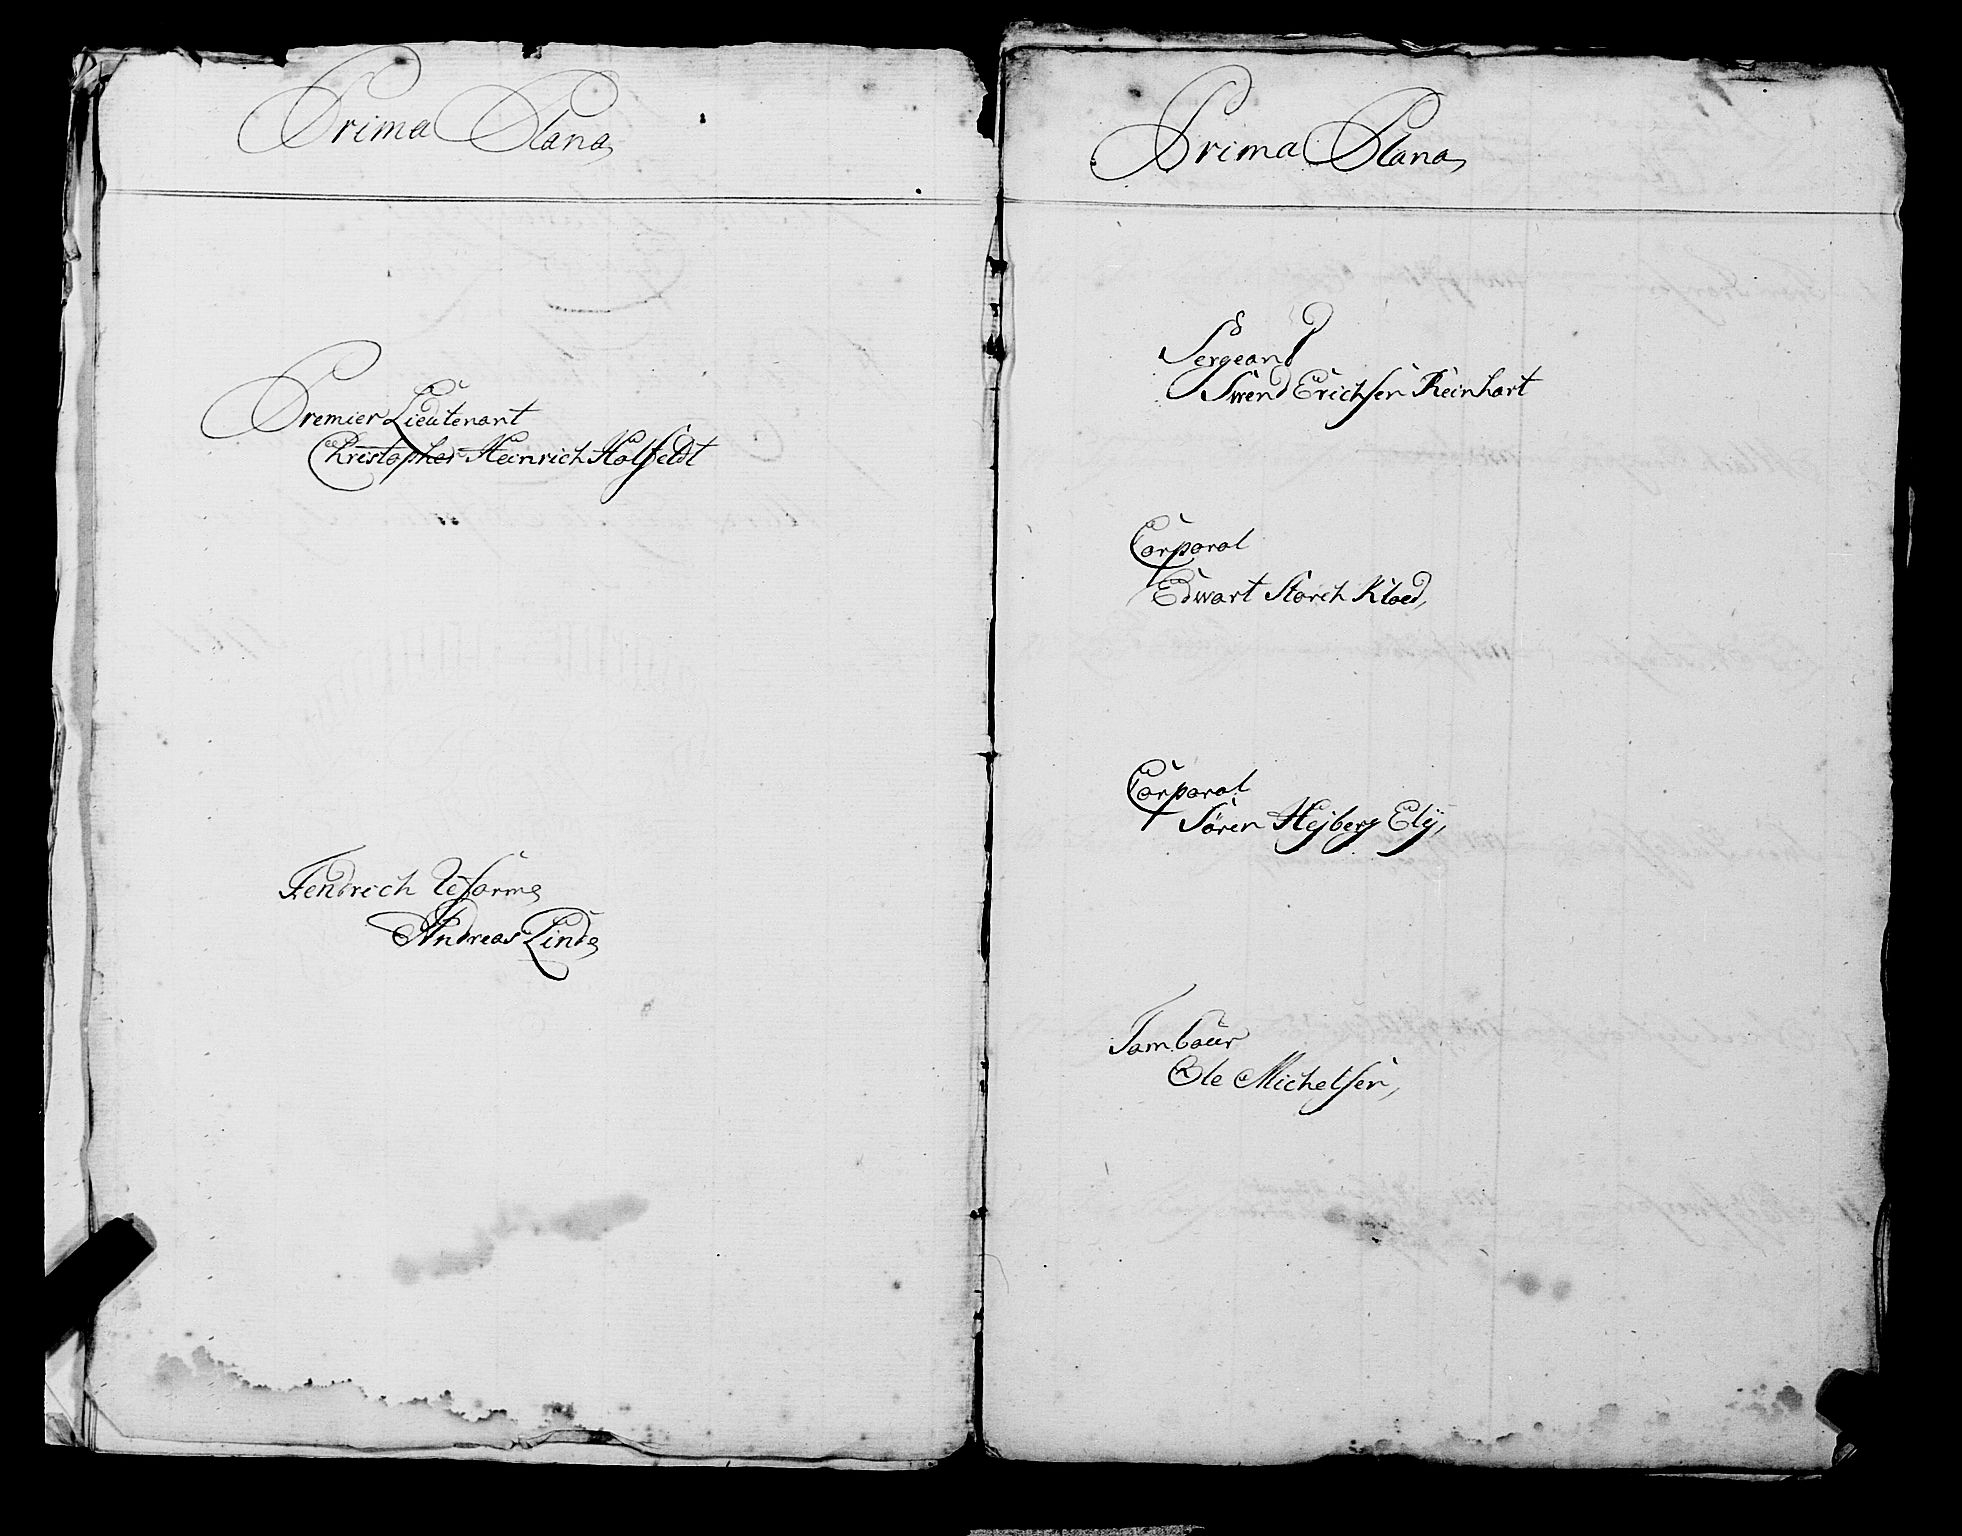 Prima Plana,
Premier Lieutenant
Christopher Heinrich Holfeldt
Fendrich Reforme
Andreas Linde
Prima Plana,
Sergeand
Swend Erichsen Reinhart
Corporal
Edwart Storch Kloed,
Corporal
Søren Hejberg Elÿ,
Tambour
Ole Michelsen,